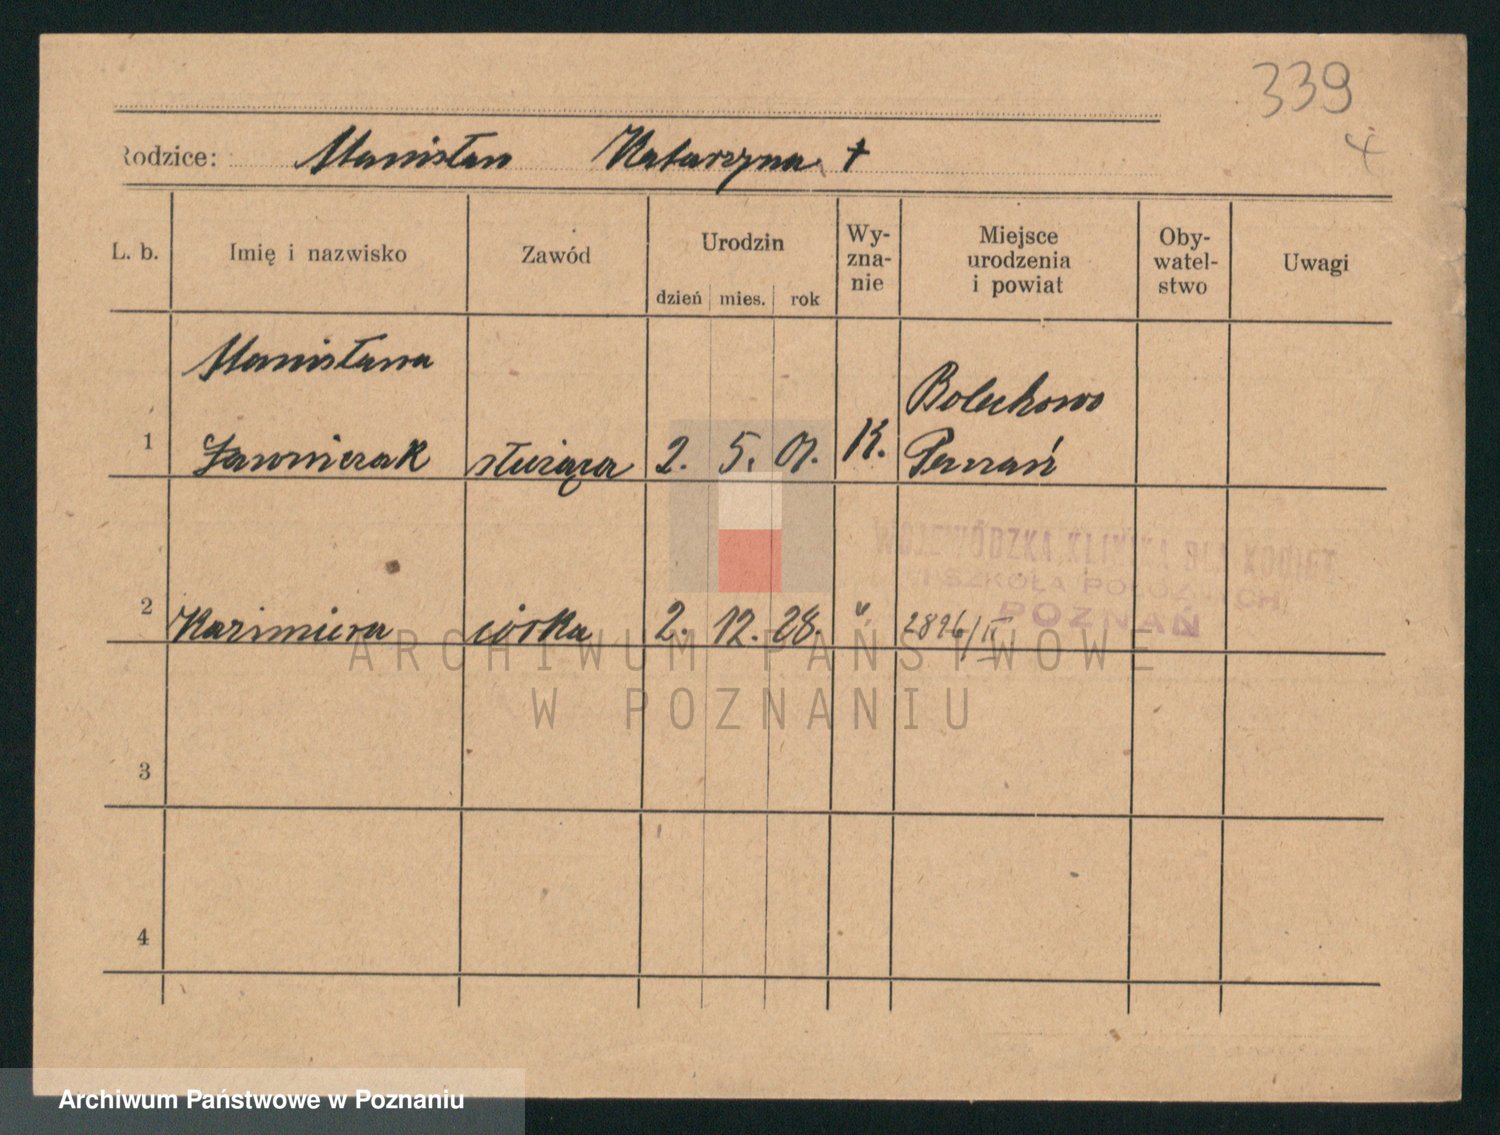 339
4
Rodzice: Stanisław Katarzyna †
L. b. Imię i nazwisko Zawód Urodzin dzień mies. rok Wy-zna-nie Miejsce urodzenia i powiat Oby-watel-stwo Uwagi
Stanisława
Bolechowo
1 Ławniczak służąca 2. 5. 01. K. Poznań
WOJEWÓDZKA KLINIKA DLA KOBIET
I SZKOŁA POŁOŻNYCH
POZNAŃ
2 Kazimiera córka 2. 12. 28. " 2896/II
ARCHIWUM PAŃSTWOWE
W POZNANIU
3
4
Archiwum Państwowe w Poznaniu